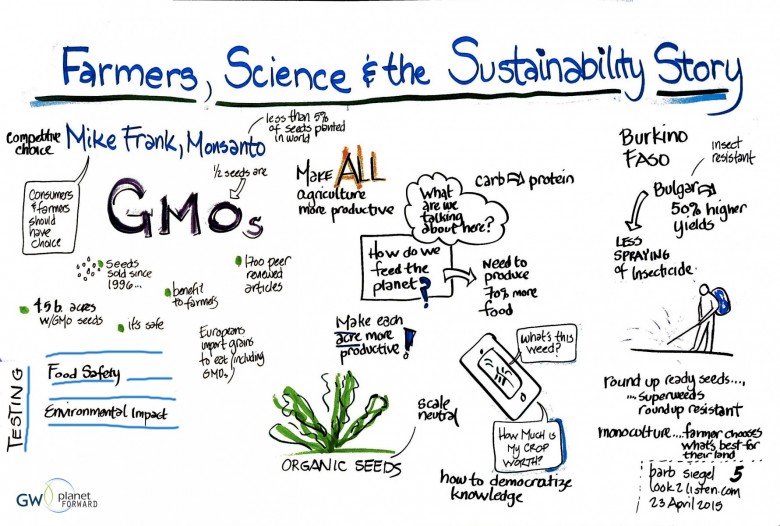 Farmers, Science & the Sustainability Story
competitive
choice
Mike Frank, Monsanto
less than 5%
of seeds planted
in world
1/2 seeds are
Consumers
& farmers
should
have
choice
GMOs
Seeds
sold since
1996...
1700 peer
reviewed
articles
benefit
to farmers
4.5 b. acres
w/GMO seeds
it's safe
Europeans
import grains
to eat (including
GMOs)
TESTING
Food Safety
Environmental Impact
GW planet
FORWARD
Make ALL
agriculture
more productive
What
are we
talking
about here?
carb protein
How do we
feed the
planet?
Need to
produce
70% more
food
Make each
acre more
productive!
What's this
weed?
How Much is
My CROP
WORTH?
how to democratize
knowledge
Scale
neutral
ORGANIC SEEDS
Burkino
Faso
insect
resistant
Bulgar
50% higher
yields
LESS
SPRAYING
of Insecticide
round up ready seeds...,
... superweeds
roundup resistant
monoculture....farmer chooses
what's best for
their land
barb siegel 5
look2listen.com
23 April 2015